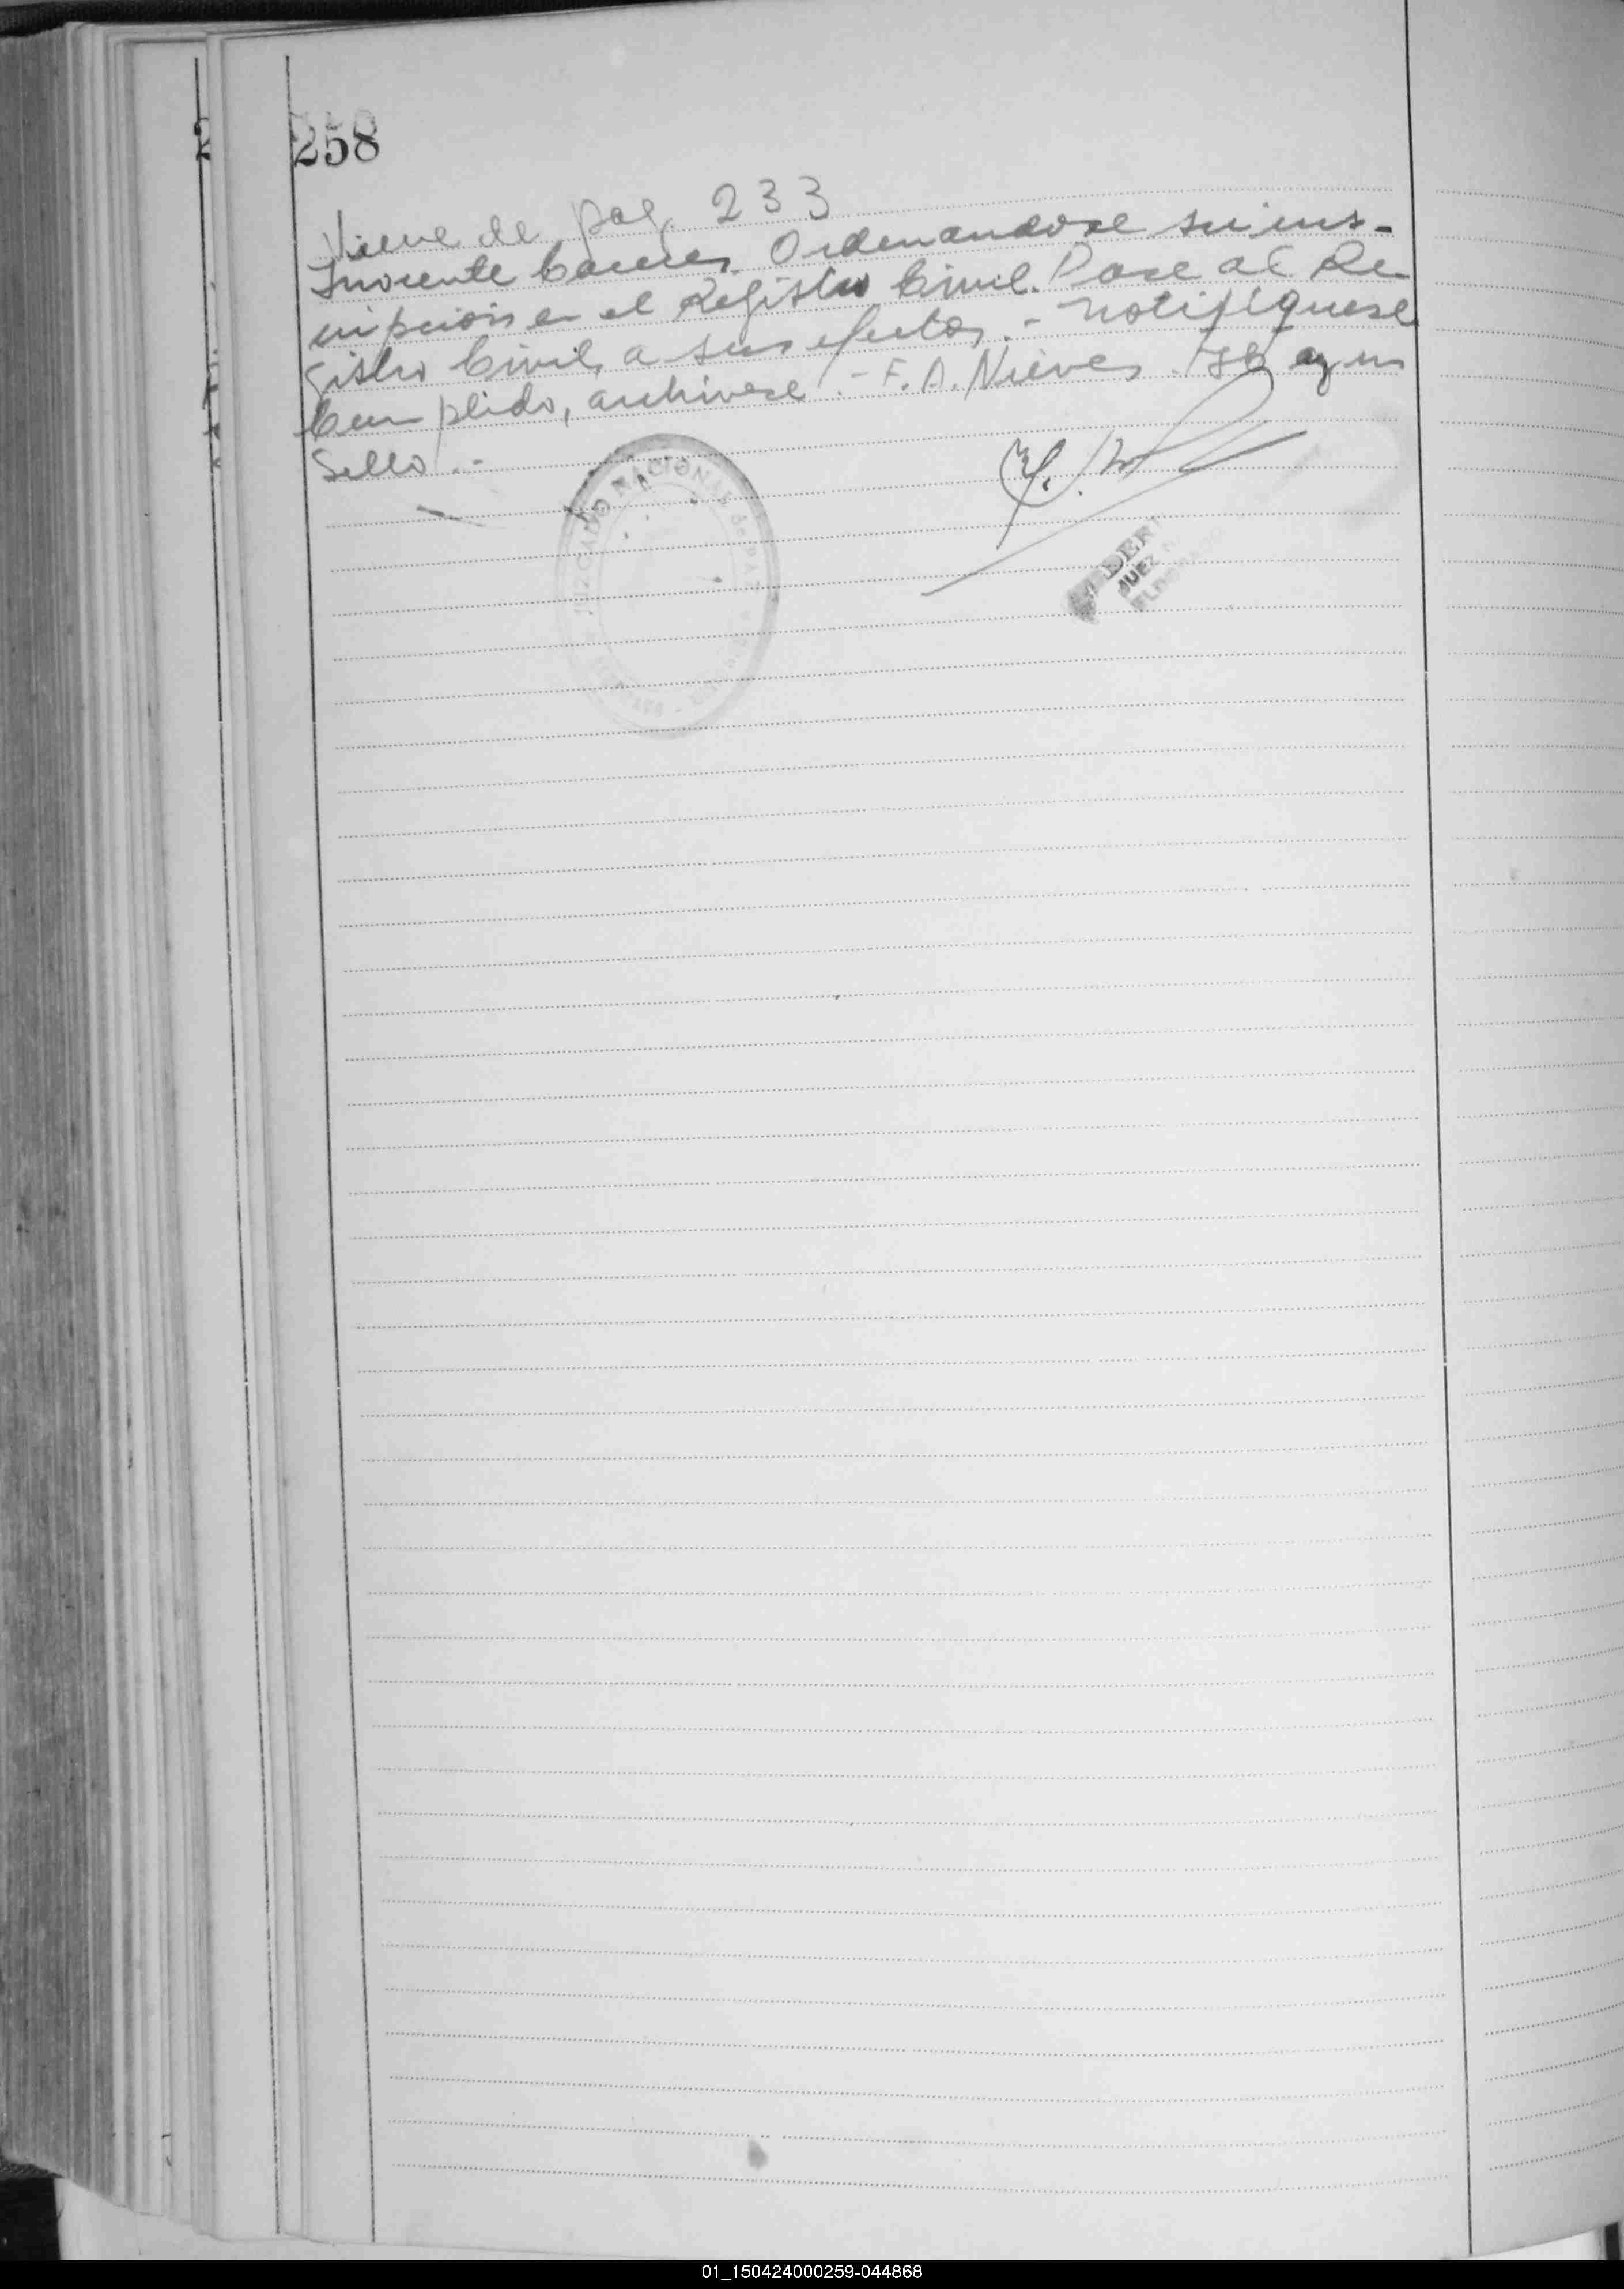 258
Viene de pag. 233
Inocente Ordenandose su ins-
cripcion en el Registro Civil. Pase al Re
gistro Civil, a sus efectos. - Notifiquese
Cumplido, archivese. - F. A. Nieves. Hay un
Sello. -
JUZGADO NACIONAL de PAZ
JUEZ
ELDORADO
01_150424000259-044868